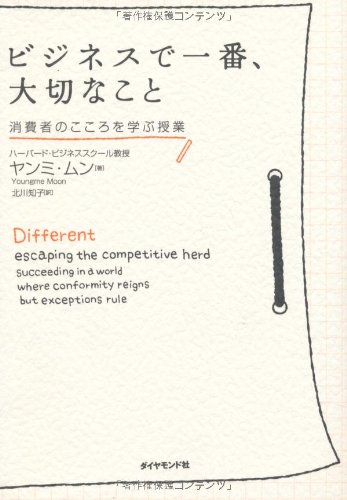 「著作権保護コンテンツ」
ビジネスで一番、
大切なこと
消費者のこころを学ぶ授業
ハーバード・ビジネススクール教授
ヤンミ・ムン[著]
Youngme Moon
北川知子[訳]
Different
escaping the competitive herd
succeeding in a world
where conformity reigns
but exceptions rule
ダイヤモンド社
「著作権保護コンテンツ」